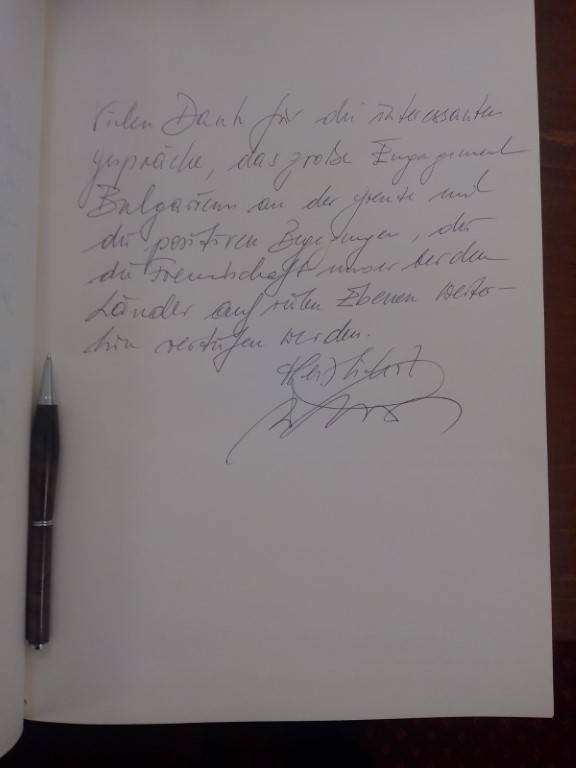 Vielen Dank für die interessanten
Gespräche, das große Engagement
Bulgariens an der Grenze und
die positiven Begegnungen, die
die Freundschaft unser beiden
Länder auf vielen Ebenen weiter-
hin vertiefen werden.
Herzlichst